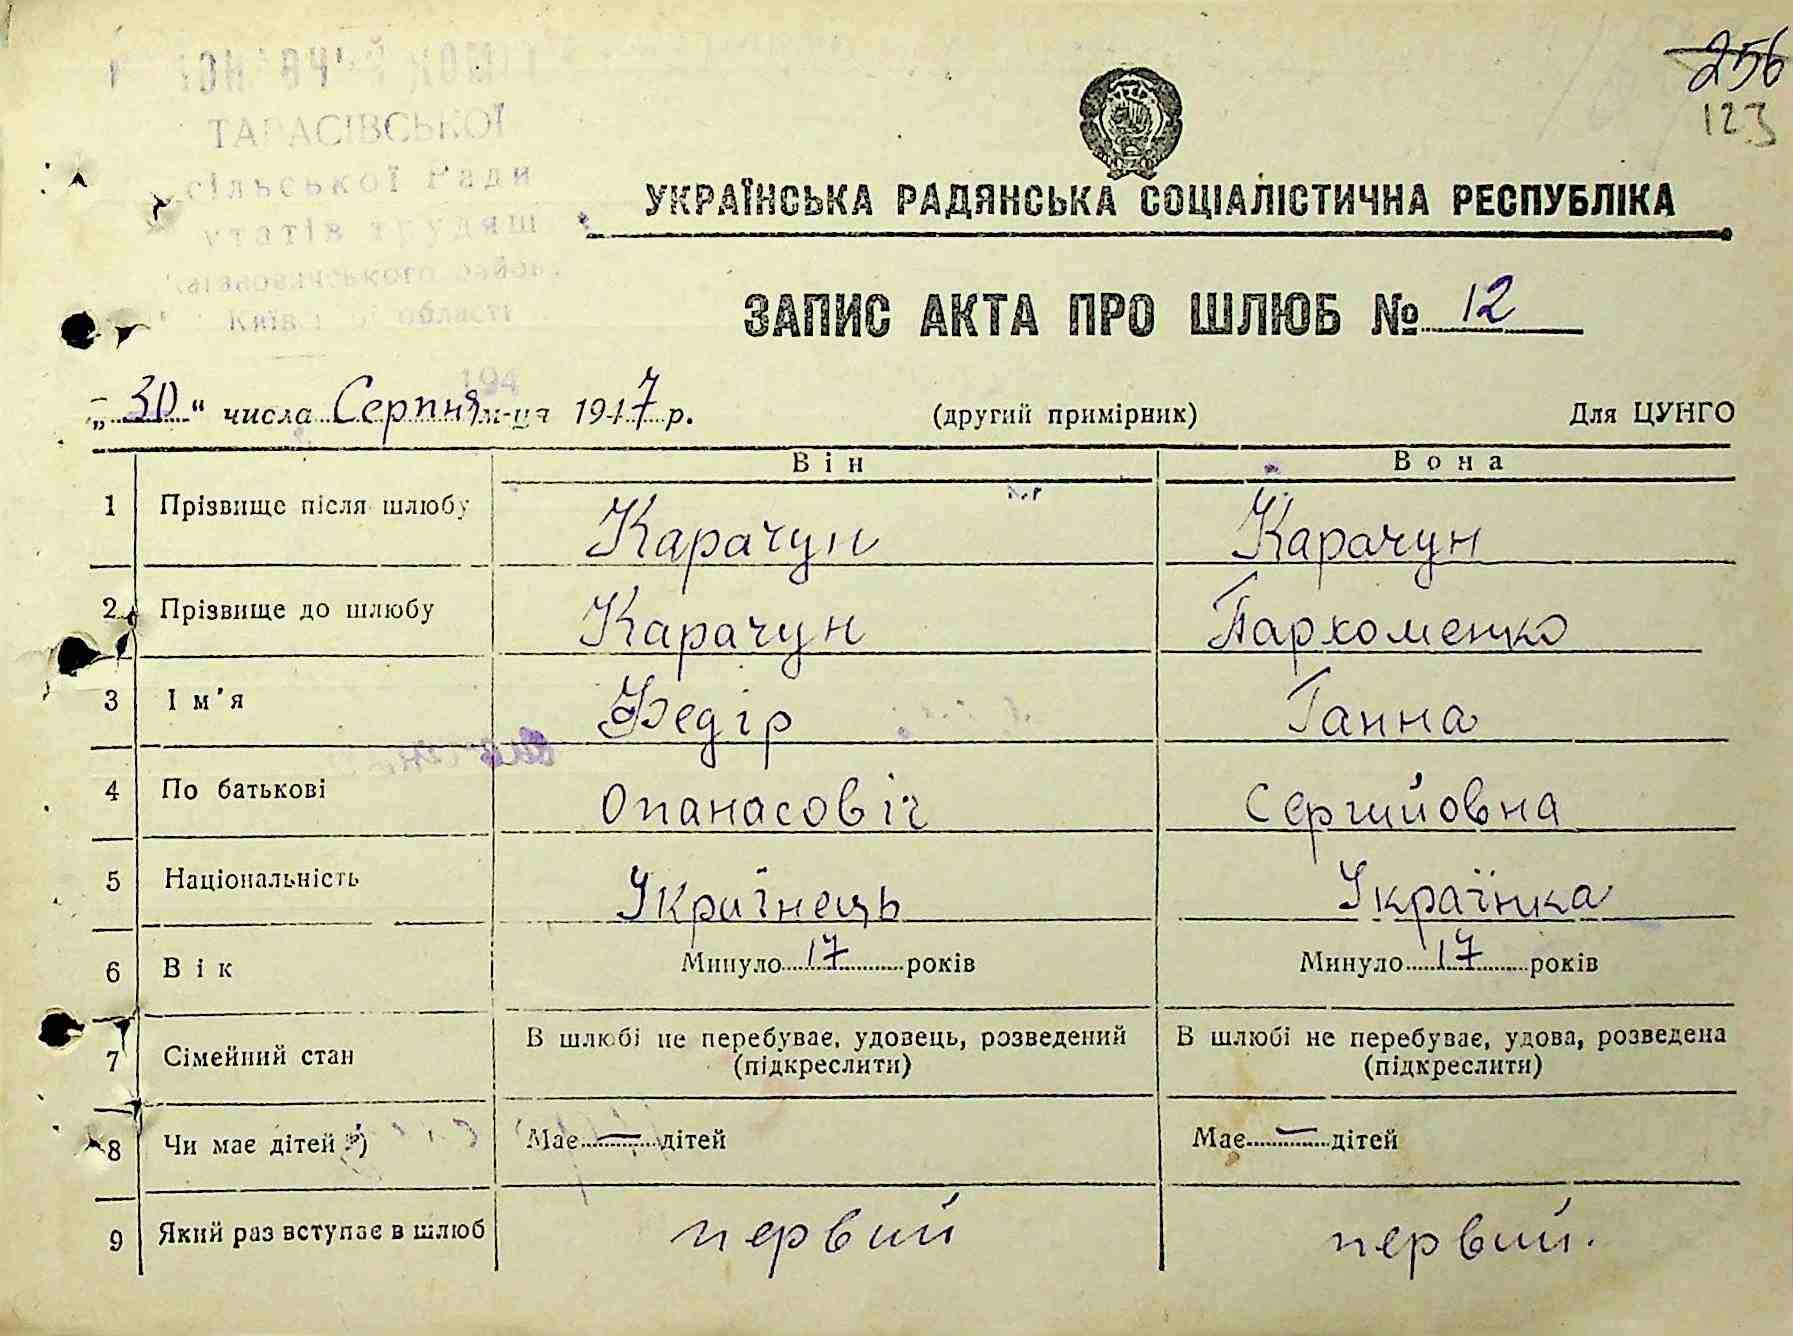 256
123
ТАРАСІВСЬКОЇ
сільської Ради
Київської області
194
УКРАЇНСЬКА РАДЯНСЬКА СОЦІАЛІСТИЧНА РЕСПУБЛІКА
ЗАПИС АКТА ПРО ШЛЮБ № 12
„30“ числа Серпня м-ця 1947 р. (другий примірник) Для ЦУНГО
Він Вона
1 Прізвище після шлюбу Карачун Карачун
2 Прізвище до шлюбу Карачун Пархоменко
3 Ім'я Федір Ганна
4 По батькові Опанасовіч Сергийовна
5 Національність Українець Українка
6 Вік Минуло 17 років Минуло 17 років
7 Сімейний стан В шлюбі не перебуває, удовець, розведений В шлюбі не перебуває, удова, розведена
(підкреслити) (підкреслити)
8 Чи має дітей *) Має — дітей Має — дітей
9 Який раз вступає в шлюб первий первий.